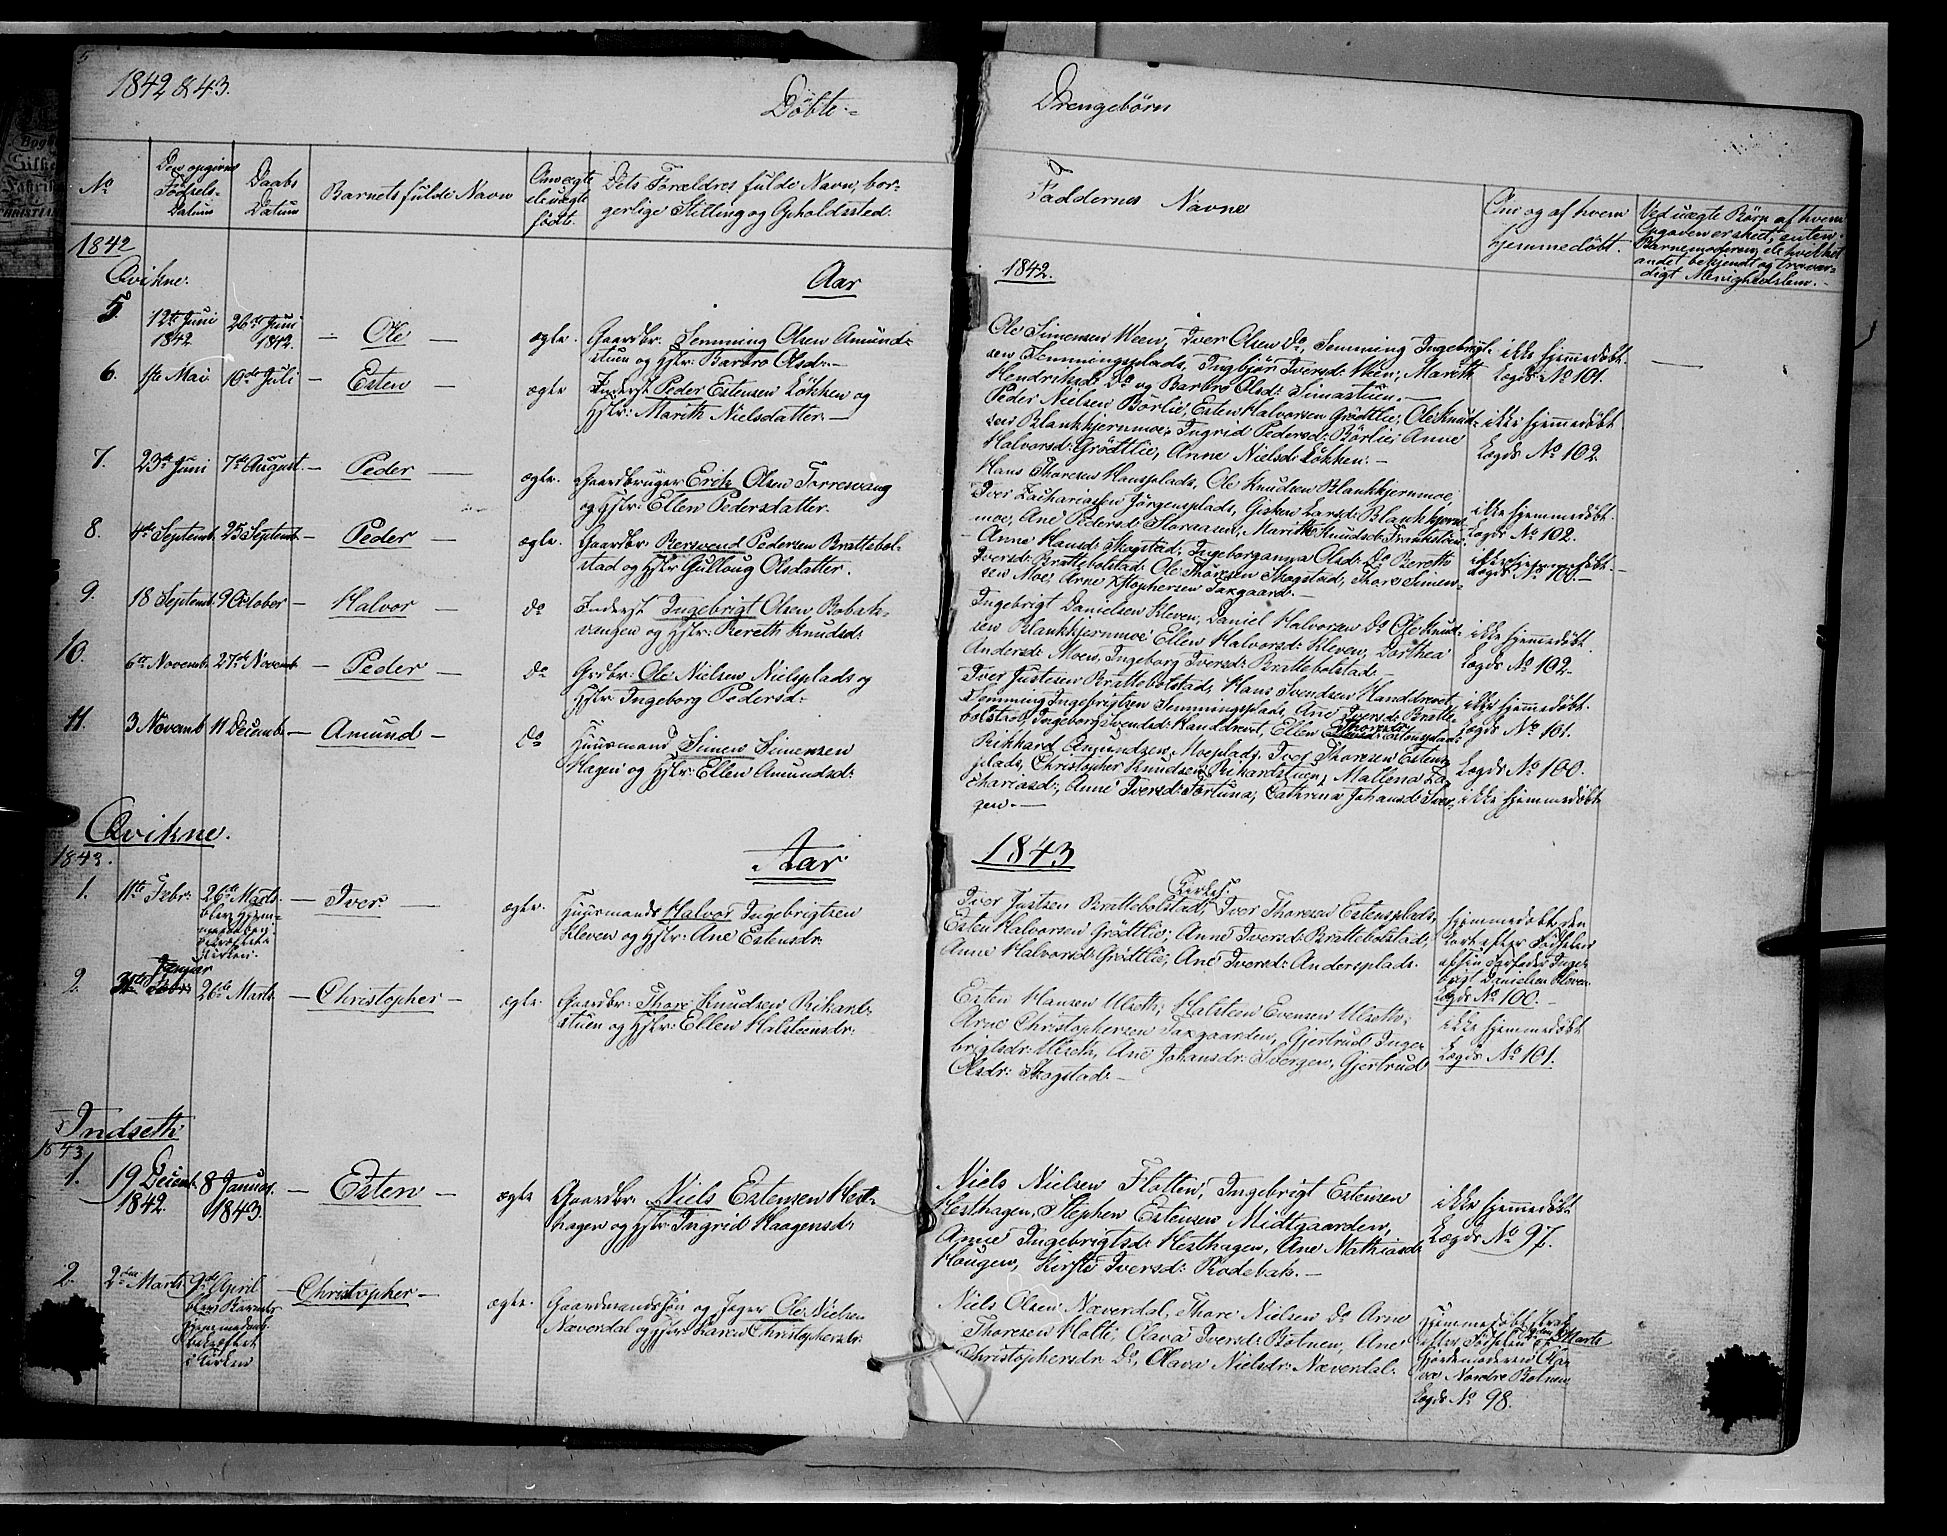 5
1842 & 43.
Döbte-
Drengebörn
No
Den opgivne Födsels-Datum
Daabs Datum
Barnets fulde Navn
Om ægte el: uægte födt.
Dets Forældres fulde Navn, bor-
gerlige Stilling og Opholdssted.
Faddernes Navne
Om og af hvem
hjemmedöbt.
Ved uægte Börn af hvem
Opgaven er skeet, enten
Barnemoderen, el: hvilket
andet bekjendt og trovær-
digt Menighedslem.-
1842
Qvikne.
Aar
1842.
5. 12te Juni 1842 26de Juni 1842. - Ole - ægte. Gaardbr: Jemming Olsen Amunds-
stuen og Hstr: Barbro Olsdr.-
Ole Simensen Meen, Iver Olsen Do, Jemming Ingebrigt-
sen Jemmingsplads, Ingbjör Iversd: Meen, Marith
Hendriksd: Do og Barbro Olsd: Simastuen.-
ikke hjemmedöbt.
Lægds No 101.
6. 1ste Mai 10de Juli - Esten - ægte Inderst Peder Estensen Lökken og
Hstr: Marith Nielsdatter.-
Peder Nielsen Börlie, Esten Halvorsen Grödtlie, Ole Knud-
sen Blankkjernmoe, Ingrid Pedersd: Börlie, Anne
Halvorsd: Grödtlie, Anne Nielsd: Lökken.-
ikke hjemmedöbt
Lægds No 102.
7. 23de Juni 7de August. - Peder - ægte. Gaardbruger Erik Olsen Torresvang
og Hstr: Ellen Pedersdatter.
Hans Thoresen Hansplads, Ole Knudsen Blankkjernmoe,
Iver Zachariassen Jörgensplads, Gisken Larsd: Blankkjern-
moe, Ane Pedersd: Storaasen, Marith Knudsd:
ikke hjemmedöbt.
Lægds No 102.
8. 4de Septemb. 25 Septemb. - Peder - ægte. Gaardbr: Bersvend Pedersen Brattebol-
stad og Hstr Gulloug Olsdatter.
- Anne Hansd: Skogstad, Ingeborganna Olsd: Do Bereth
Iversd: Brattebolstad, Ole Thoresen Skogstad, Thore Simen-
sen Moe, Arne Kstophersen Taxgaard.-
ikke hjemmedöbt.
Lægds No 100.-
9. 18 Septemb. 9 October - Halvor - do Inderst Ingebrigt Olsen Bobak-
vangen og Hstr: Bereth Knudsd:
Ingebrigt Danielsen Kleven, Daniel Halvorsen Do Ole Knud-
sen Blankkjernmoe Ellen Halvorsd: Kleven, Dorthea
Andersd: Moen, Ingeborg Iversd: Brattebolstad.
ikke hjemmedöbt
Lægds No 102.
10. 6te Novemb. 27de Novemb. - Peder - do Grdbr: Ole Nielsen Nielsplads og
Hstr: Ingeborg Pedersd:
Iver Justesen Brattebolstad, Hans Svendsen Handdrevet,
Jemming Ingebrigtsen Jemmingsplads, Ane Iversd: Bratte-
bolstad, Ingeborg Svendsd: Handdrevet, Ellen Thoresd: Estensplads
ikke hjemmedöbt.
Lægds No 101.
11. 3 Novemb. 11 Decemb. - Amund - do Huusmand Simen Simensen
Hagen og Hstr: Ellen Amundsd:
Rikhard Amundsen Moeplads, Iver Thoresen Estens-
plads, Christopher Knudsen Rikardstuen, Mallena Za-
chariasd:, Anne Iversd: Fortuna, Cathrina Johansd: Svær-
gen.-
Lægds No 100.
ikke hjemmedöbt
Qvikne.
1843.
Aar
1843
1. 11te Febr: 26de Marts. - Iver - ægte. Huusmands Halvor Ingebrigtsen
blev Hjem-
bekræftet i Kirken.
Kleven og Hstr: Ane Estensdr.
Kirkes.
Iver Justsen Brattebolstad, Iver Thoresen Estensplads,
Esten Halvorsen Grödtlie, Anne Iversd: Brattebolstad,
Anne Halvorsd: Grödtlie, Ane Iversd: Andersplads.
Hjemmedöbt den
kort efter Födselen
af sin Farfader Inge-
brigt Danielsen Kleven.
Lægds No 100.-
2. Januar 26de Marts. - Christopher - ægte. Gaardbr: Thore Knudsen Rikard-
stuen og Hstr: Ellen Halsteensdr:
Esten Hansen Ulseth, Halsteen Evensen Ulseth,
Arne Christophersen Taxgaarden, Gjertrud Inge-
brigtsdr: Ulseth, Ane Johansdr: Svergen, Gjertrud
Olsdr: Skogstad.-
ikke hjemmedöbt
Lægds No 101.
Indseth
1843
1. 19 Decemb. 1842. 8 Januar. 1843. - Esten - ægte Gaardbr. Niels Estensen Hest-
hagen og Hstr: Ingrid Haagensd:
Niels Nielsen Flatten, Ingebrigt Estensen
Hesthagen, Stephen Estensen Midtgaarden,
Anne Ingebrigtsd: Hesthagen, Ane Mathiasd:
Hougen, Kirsti Iversd: Rodebak.-
ikke hjemmedöbt
Lægds No 97.
2. 2den Marts. 9de April - Christopher - ægte. Gaardmandssön og Jæger Ole Nielsen
blev Barnets
Hjemmedaab
bekræftet
i Kirken
Næverdal og Hstr: Karen Christophersdr.
Niels Olsen Næverdal, Thore Nielsen Do Arne
Thoresen Holte, Olava Iversd: Botnen, Ane
Christophersdr: Do, Olava Nielsdr: Næverdal.
Hjemmedöbt strax
efter Födselen den 3 Marts
Gjordemoderen
Nordre Botnen
Lægds No 98.